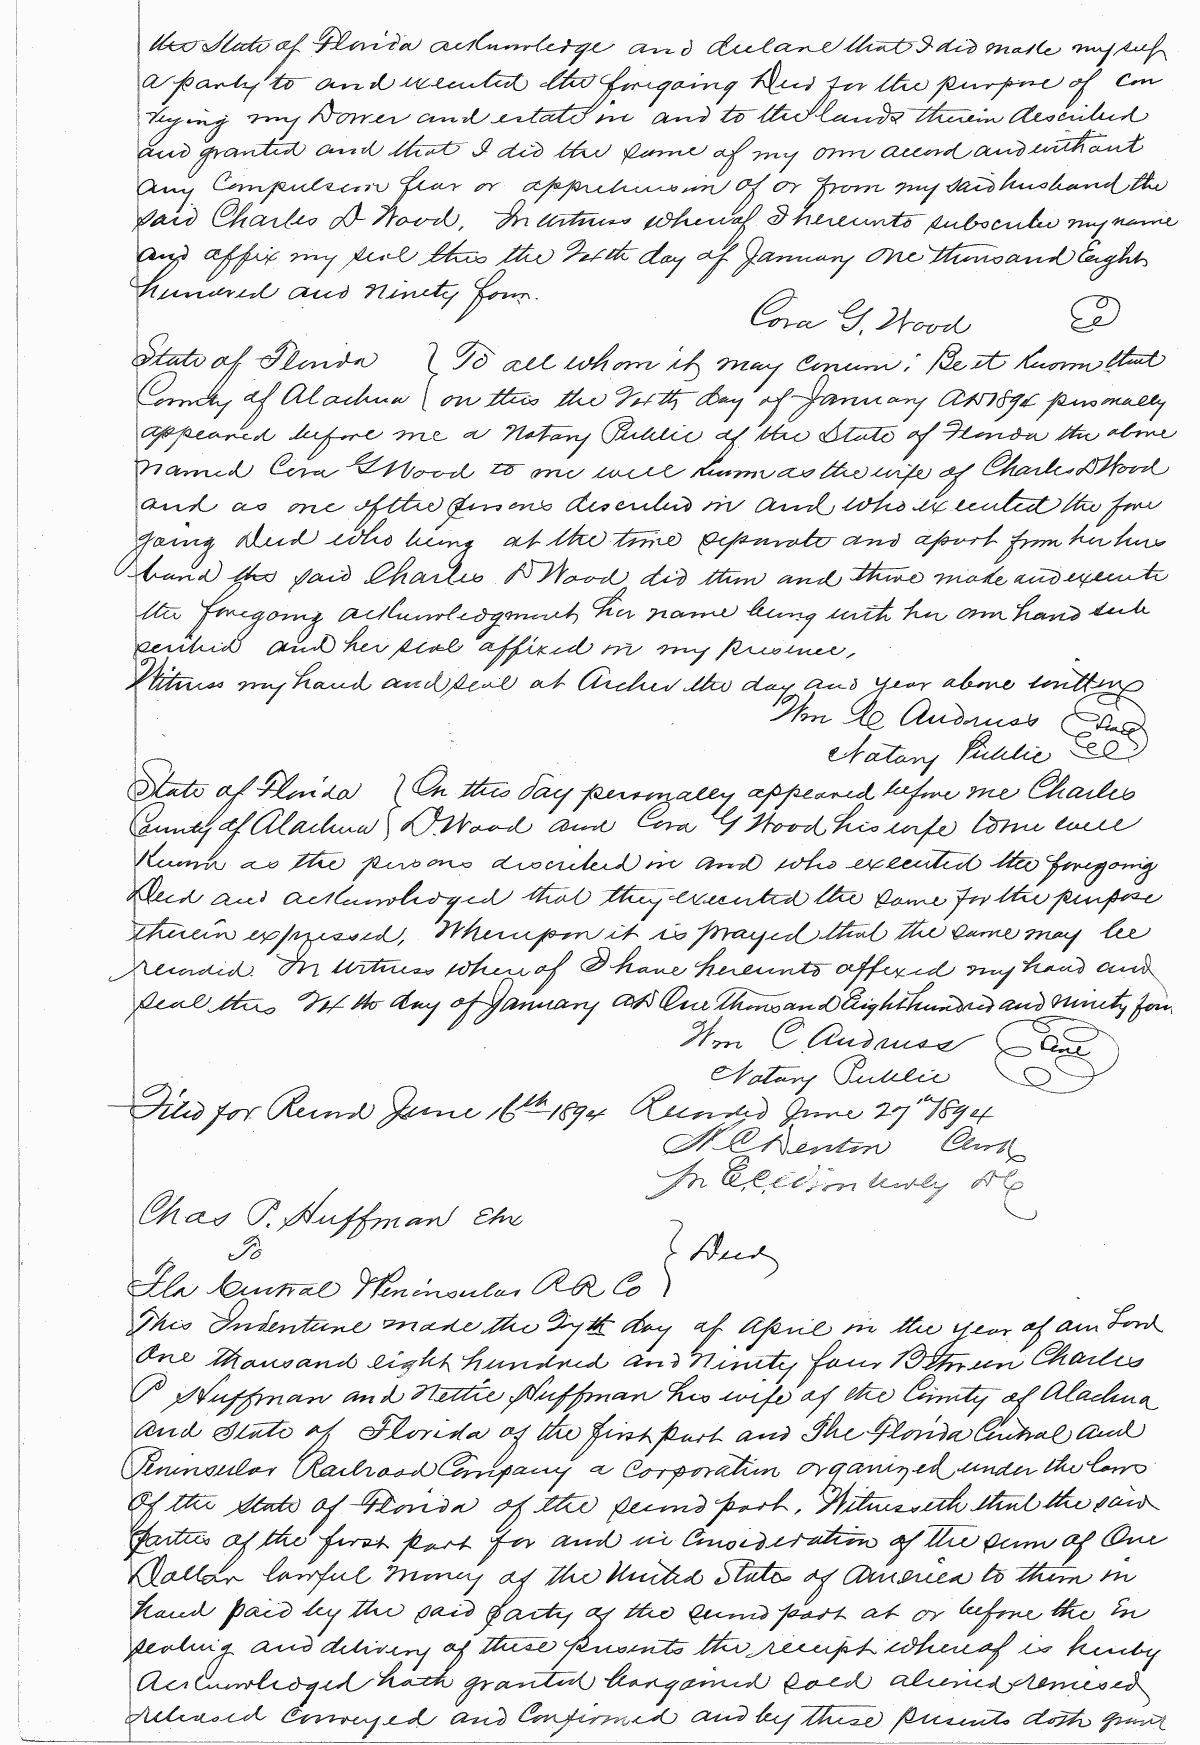 the State of Florida acknowledge and declare that I did make myself
a party to and executed the foregoing Deed for the purpose of con
veying my Dower and estate in and to the lands therein described
and granted and that I did the same of my own accord and without
any Compulsion fear or apprehension of or from my said husband the
said Charles D Wood. In witness whereof I hereunto subscribe my name
and affix my seal this the day of January one thousand Eight
hundred and ninety four.
Cora G. Wood
State of Florida } To all whom it may concern: Be it Known that
County of Alachua } on this the day of January AD 1894 personally
appeared before me a Notary Public of the State of Florida the above
named Cora G Wood to me well known as the wife of Charles D Wood
and as one of the persons described in and who executed the fore
going Deed who being at the time separate and apart from her hus
band the said Charles D Wood did then and there make and execute
the foregoing acknowledgment her name being with her own hand sub
scribed and her seal affixed in my presence,
Witness my hand and seal at Archer the day and year above written
Wm C Andruss Seal
Notary Public
State of Florida } On this day personally appeared before me Charles
County of Alachua } D. Wood and Cora G Wood his wife to me well
Known as the persons discribed in and who executed the foregoing
Deed and acknowledged that they executed the same for the purpose
therein expressed, Whereupon it is prayed that the same may be
recorded. In witness whereof I have hereunto affixed my hand and
seal this day of January AD One thousand Eight hundred and ninety four
Wm C Andruss Seal
Notary Public
Filed for Record June 16th 1894 Recorded June 27th 1894
H C Denton Clerk
DC
Chas P. Huffman
To } Deed
Fla Central & Peninsular R R Co
This Indenture made the day of April in the year of our Lord
One thousand eight hundred and ninety four Between Charles
P Huffman and Nettie Huffman his wife of the County of Alachua
and State of Florida of the first part and The Florida Central and
Peninsular Railroad Company a corporation organized under the laws
of the State of Florida of the second part. Witnesseth that the said
parties of the first part for and in Consideration of the sum of One
Dollar lawful money of the United States of America to them in
hand paid by the said party of the second part at or before the en
sealing and delivery of these presents the receipt whereof is hereby
Acknowledged hath granted bargained sold aliened remised
released Conveyed and Confirmed and by these presents doth grant